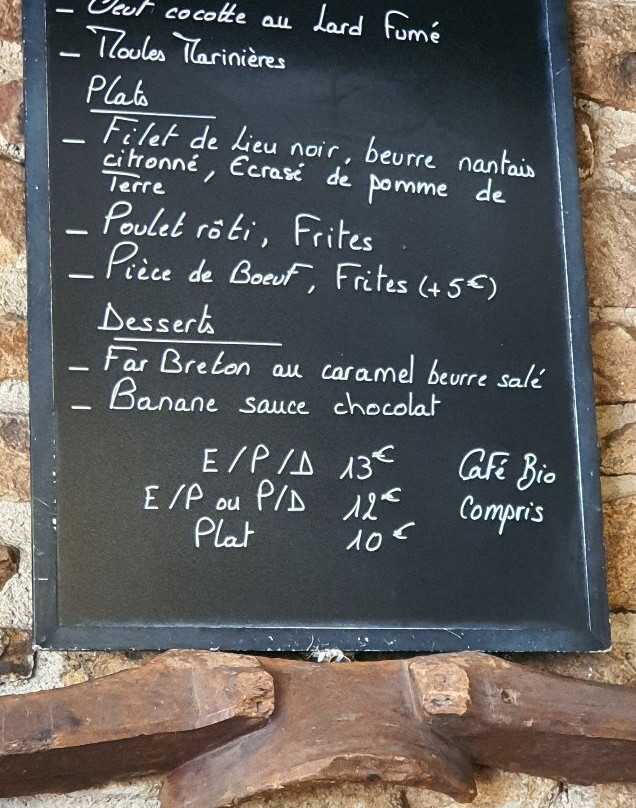 - Oeuf cocotte au Lard Fumé
- Moules Marinières
Plats
- Filet de Lieu noir, beurre nantais
citronné, Ecrasé de pomme de
Terre
- Poulet rôti, Frites
- Pièce de Boeuf, Frites (+5€)
Desserts
- Far Breton au caramel beurre salé
- Banane sauce chocolat
E/P/D 13€ Café Bio
E/P ou P/D 12€ Compris
Plat 10€